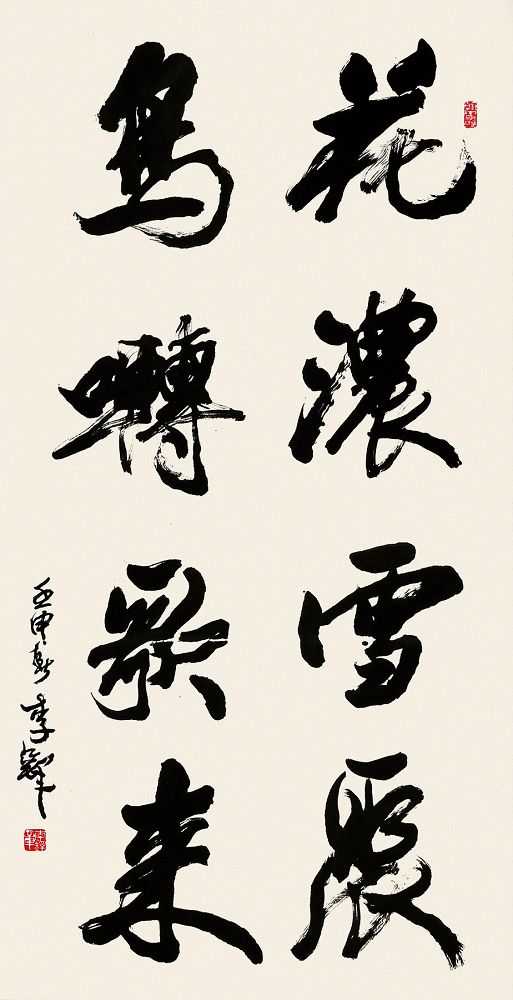 花濃雪聚
鳥囀歌来
壬申 李鐸